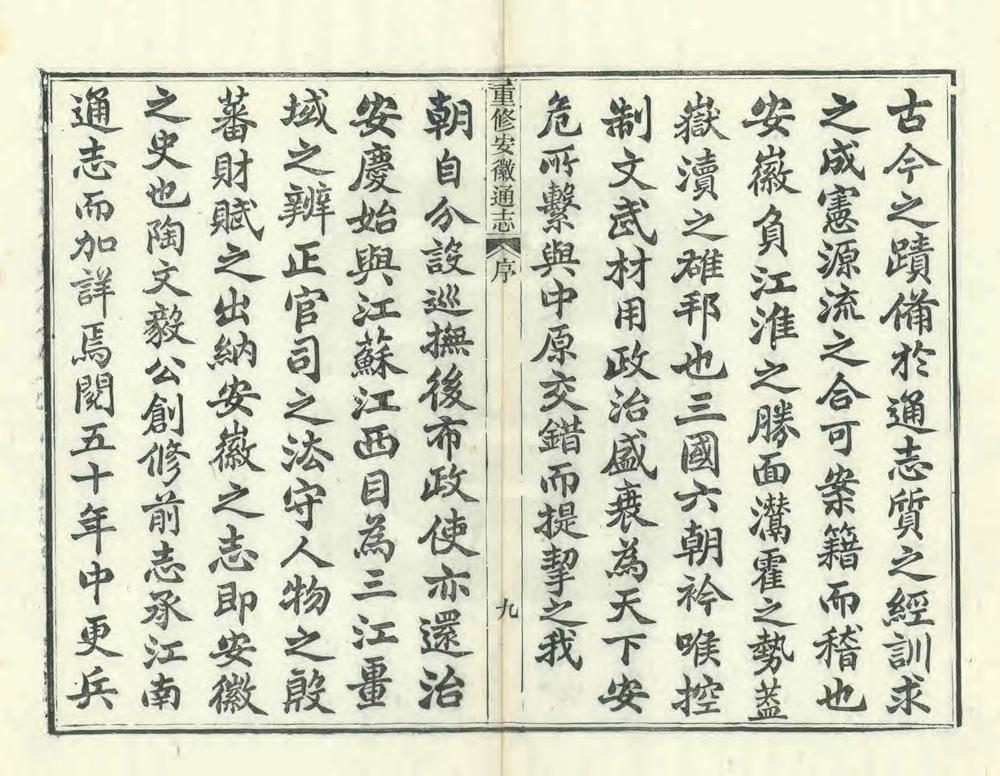 古今之蹟備於通志質之經訓求
之成憲源流之合可案籍而稽也
安徽負江淮之勝面灊霍之勢蓋
嶽瀆之雄邦也三國六朝衿喉控
制文武材用政治盛衰為天下安
危所繫與中原交錯而提挈之我
重修安徽通志 序 九
朝自分設巡撫後布政使亦還治
安慶始與江蘇江西目為三江畺
域之辨正官司之法守人物之殷
蕃財賦之出納安徽之志即安徽
之史也陶文毅公創修前志承江南
通志而加詳焉閱五十年中更兵